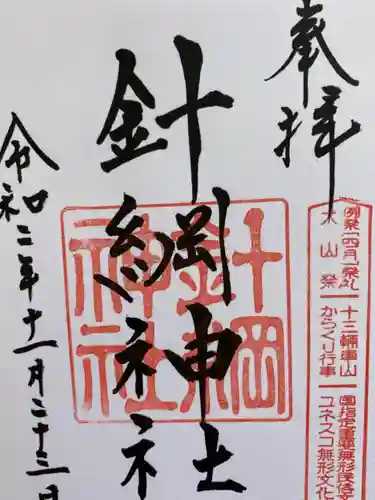 奉拝
例祭「四月」祭礼 十三輛車山 國指定重要無形民俗
犬山祭 からくり行事 ユネスコ無形文化
針綱神社
針綱神社
令和二年十一月二十三日